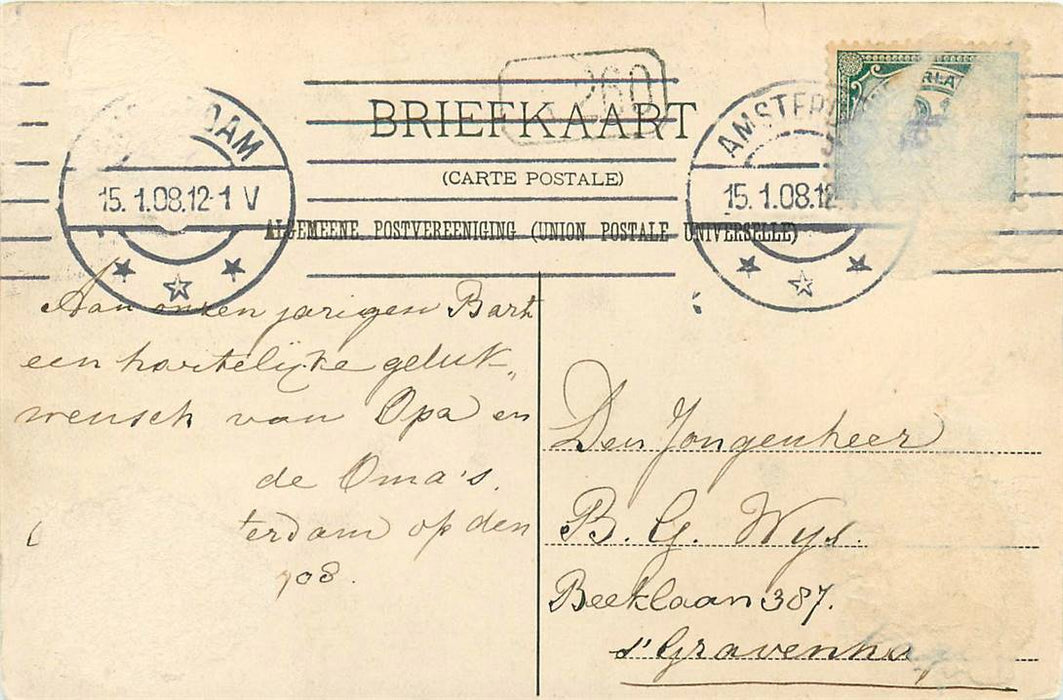 260
BRIEFKAART
(CARTE POSTALE)
ALGEMEENE POSTVEREENIGING (UNION POSTALE UNIVERSELLE)
DAM
15.1.08.12-1 V
AMSTERD
15.1.08.12
ERLA
Aan onzen jarigen Bart
een hartelijke geluk„
wensch van Opa en
de Oma's.
terdam op den
908.
Den Jongenheer
B. G. Wijs.
Beeklaan 387.
s'Gravenha